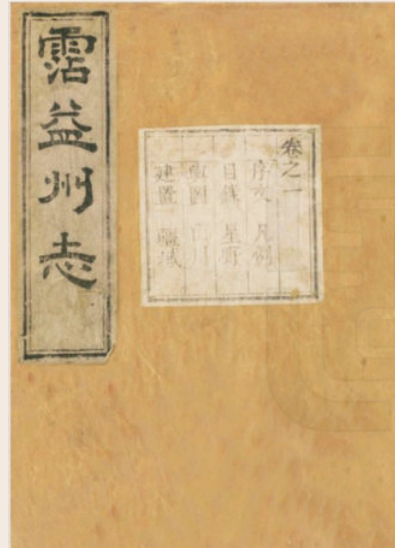 霑益州志
卷之一
序文 凡例
目錄 星野
輿圖 山川
建置 疆域